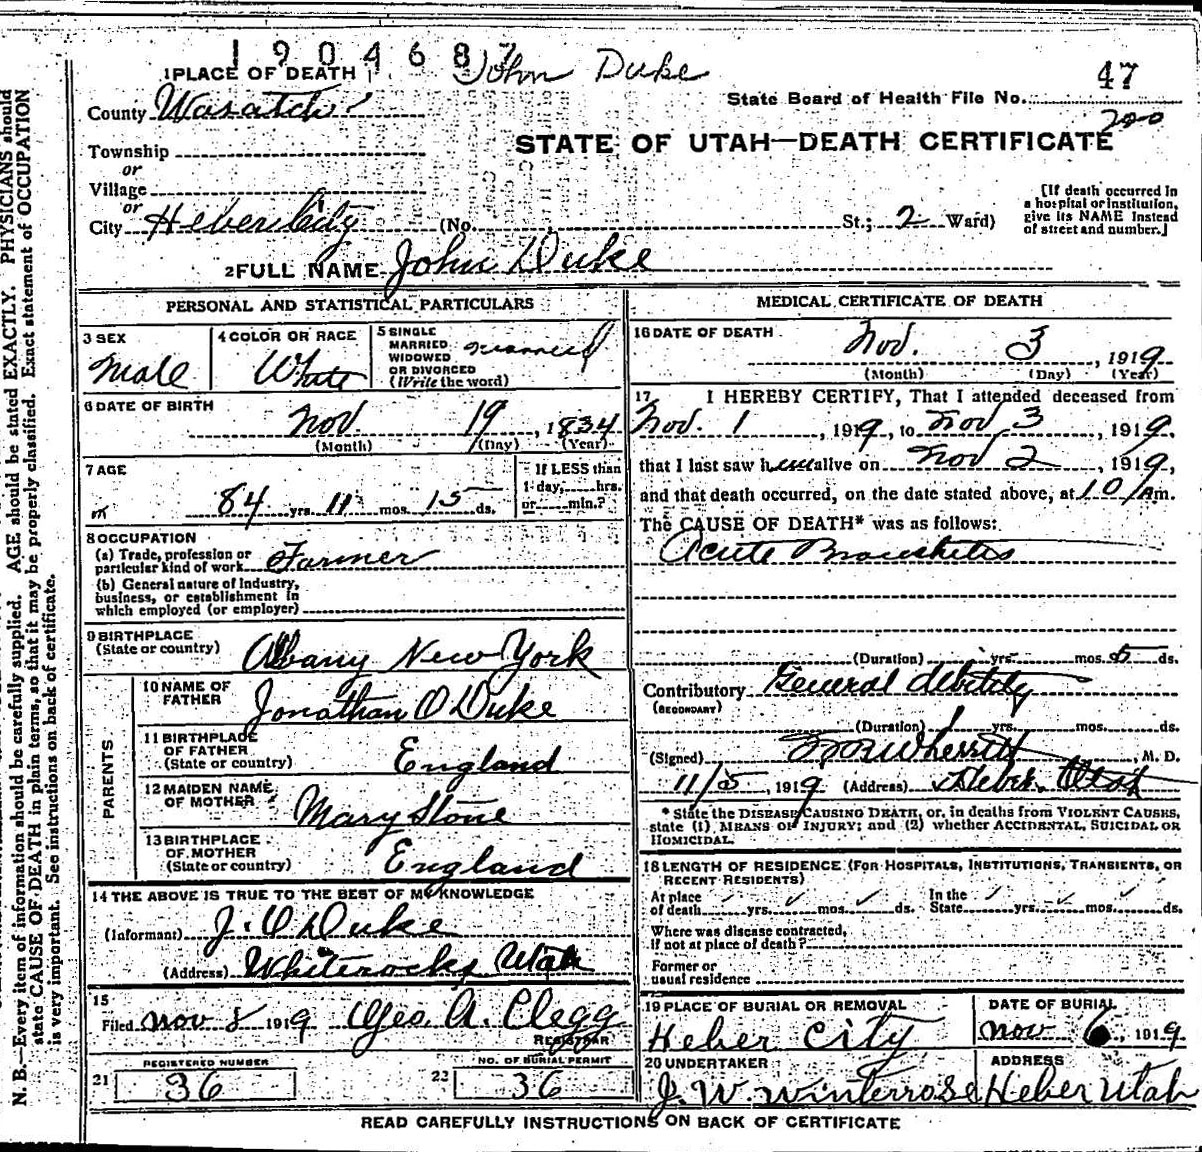 1904687 John Duke
1 PLACE OF DEATH
47
County Wasatch
State Board of Health File No.
200
Township
STATE OF UTAH—DEATH CERTIFICATE
or
Village
or
City Heber City (No. St.; 2 Ward)
[If death occurred in
a hospital or institution,
give its NAME instead
of street and number.]
2 FULL NAME John Duke
PERSONAL AND STATISTICAL PARTICULARS
3 SEX
Male
4 COLOR OR RACE
White
5 SINGLE
MARRIED
WIDOWED
OR DIVORCED
(Write the word)
married
6 DATE OF BIRTH
Nov. 19, 1834
(Month) (Day) (Year)
7 AGE
84 yrs. 11 mos. 15 ds.
If LESS than
1 day, hrs.
or min.?
8 OCCUPATION
(a) Trade, profession or
particular kind of work Farmer
(b) General nature of Industry,
business, or establishment in
which employed (or employer)
9 BIRTHPLACE
(State or country) Albany New York
PARENTS
10 NAME OF
FATHER Jonathan O Duke
11 BIRTHPLACE
OF FATHER
(State or country) England
12 MAIDEN NAME
OF MOTHER Mary Stone
13 BIRTHPLACE
OF MOTHER
(State or country) England
14 THE ABOVE IS TRUE TO THE BEST OF MY KNOWLEDGE
(Informant) J. O Duke
(Address) Whiterocks Utah
15
Filed Nov 8 1919 Geo. A. Clegg
REGISTRAR
REGISTERED NUMBER
21 36
NO. OF BURIAL PERMIT
22 36
MEDICAL CERTIFICATE OF DEATH
16 DATE OF DEATH
Nov. 3, 1919
(Month) (Day) (Year)
17 I HEREBY CERTIFY, That I attended deceased from
Nov. 1, 1919, to Nov 3, 1919,
that I last saw him alive on Nov 2, 1919,
and that death occurred, on the date stated above, at 10 Am.
The CAUSE OF DEATH* was as follows:
Acute Bronchitis
(Duration) yrs. mos. 5 ds.
Contributory General debility
(SECONDARY)
(Duration) 1 yrs. mos. ds.
(Signed) Wherritt, M. D.
11/5, 1919 (Address) Heber, Utah
* State the DISEASE CAUSING DEATH, or, in deaths from VIOLENT CAUSES,
state (1) MEANS OF INJURY; and (2) whether ACCIDENTAL, SUICIDAL OR
HOMICIDAL.
18 LENGTH OF RESIDENCE (FOR HOSPITALS, INSTITUTIONS, TRANSIENTS, OR
RECENT RESIDENTS)
At place
of death yrs. mos. ds.
In the
State yrs. mos. ds.
Where was disease contracted,
If not at place of death?
Former or
usual residence
19 PLACE OF BURIAL OR REMOVAL
Heber City
DATE OF BURIAL
Nov 6, 1919
20 UNDERTAKER
J. W. Winterrose
ADDRESS
Heber Utah
READ CAREFULLY INSTRUCTIONS ON BACK OF CERTIFICATE
N. B.—Every item of information should be carefully supplied. AGE should be stated EXACTLY. PHYSICIANS should
state CAUSE OF DEATH in plain terms, so that it may be properly classified. Exact statement of OCCUPATION
is very important. See instructions on back of certificate.